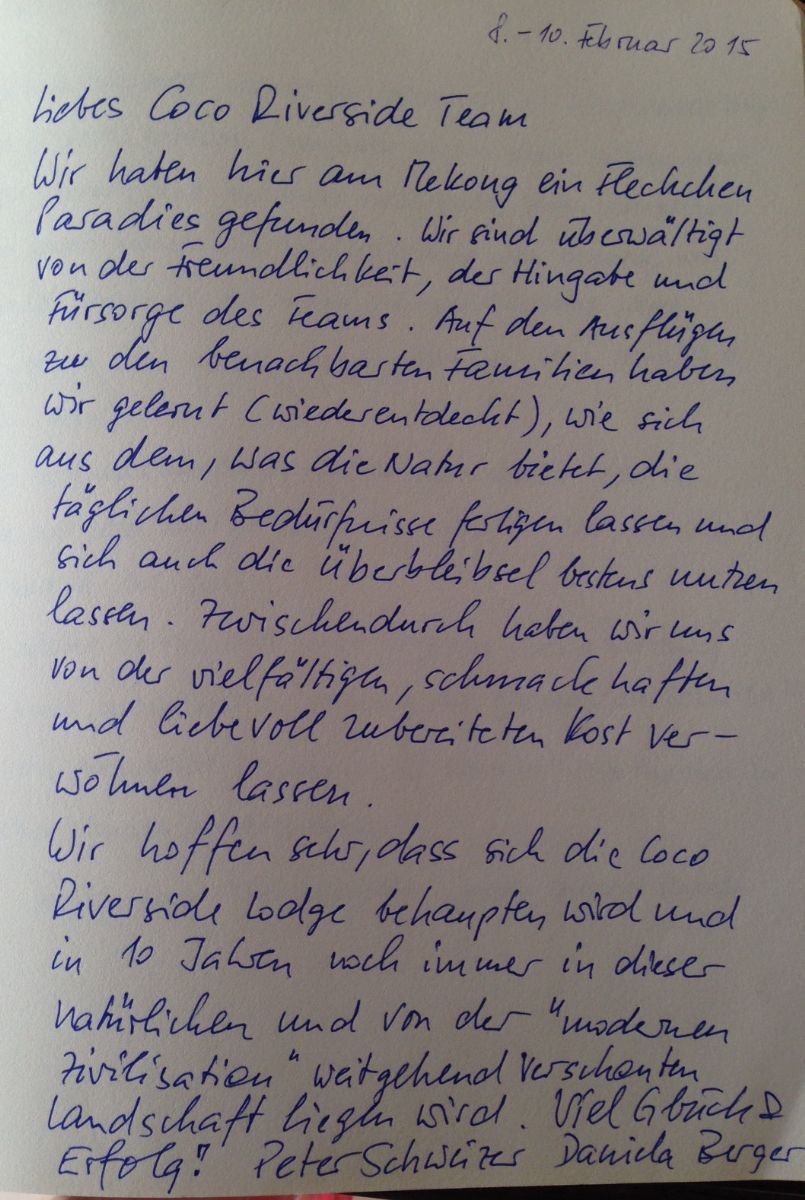 8. - 10. Februar 2015
Liebes Coco Riverside Team
Wir haben hier am Mekong ein Fleckchen
Paradies gefunden. Wir sind überwältigt
von der Freundlichkeit, der Hingabe und
Fürsorge des Teams. Auf den Ausflügen
zu den benachbarten Familien haben
wir gelernt (wiederentdeckt), wie sich
aus dem, was die Natur bietet, die
täglichen Bedürfnisse fertigen lassen und
sich auch die Überbleibsel bestens nutzen
lassen. Zwischendurch haben wir uns
von der vielfältigen, schmackhaften
und liebevoll zubereiteten Kost ver-
wöhnen lassen.
Wir hoffen sehr, dass sich die Coco
Riverside Lodge behaupten wird und
in 10 Jahren noch immer in dieser
natürlichen und von der "modernen
Zivilisation" weitgehend verschonten
Landschaft liegen wird. Viel Glück &
Erfolg! Peter Schweizer Daniela Berger